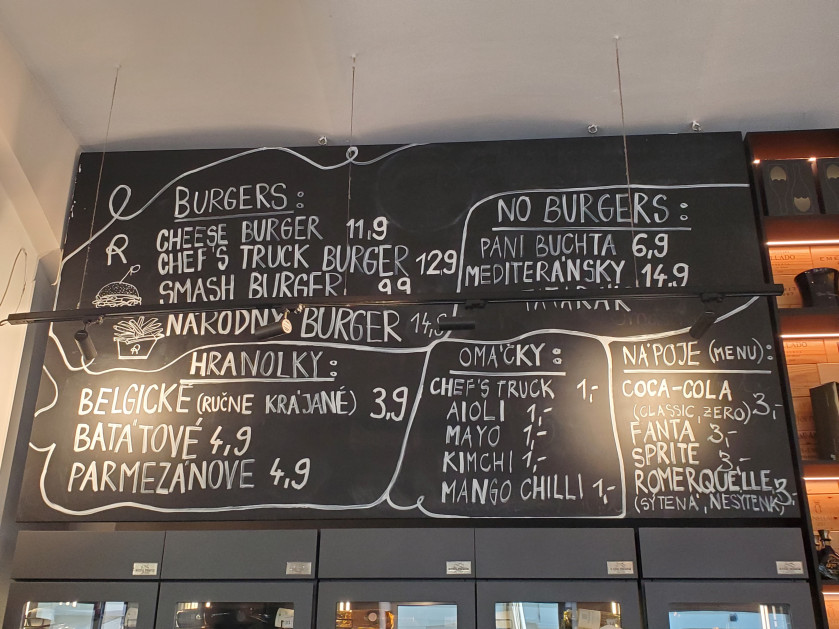 BURGERS:
CHEESE BURGER 11,9
CHEF'S TRUCK BURGER 12,9
SMASH BURGER 9,9
NÁRODNÝ BURGER 14,9
NO BURGERS:
PANI BUCHTA 6,9
MEDITERÁNSKY 14,9
TATARÁK
HRANOLKY:
BELGICKÉ (RUČNE KRÁJANÉ) 3,9
BATÁTOVÉ 4,9
PARMEZÁNOVÉ 4,9
OMÁČKY:
CHEF'S TRUCK 1,-
AIOLI 1,-
MAYO 1,-
KIMCHI 1,-
MANGO CHILLI 1,-
NÁPOJE (MENU):
COCA-COLA
(CLASSIC, ZERO) 3,-
FANTA 3,-
SPRITE 3,-
ROMERQUELLE 3,-
(SÝTENÁ, NESÝTENÁ)